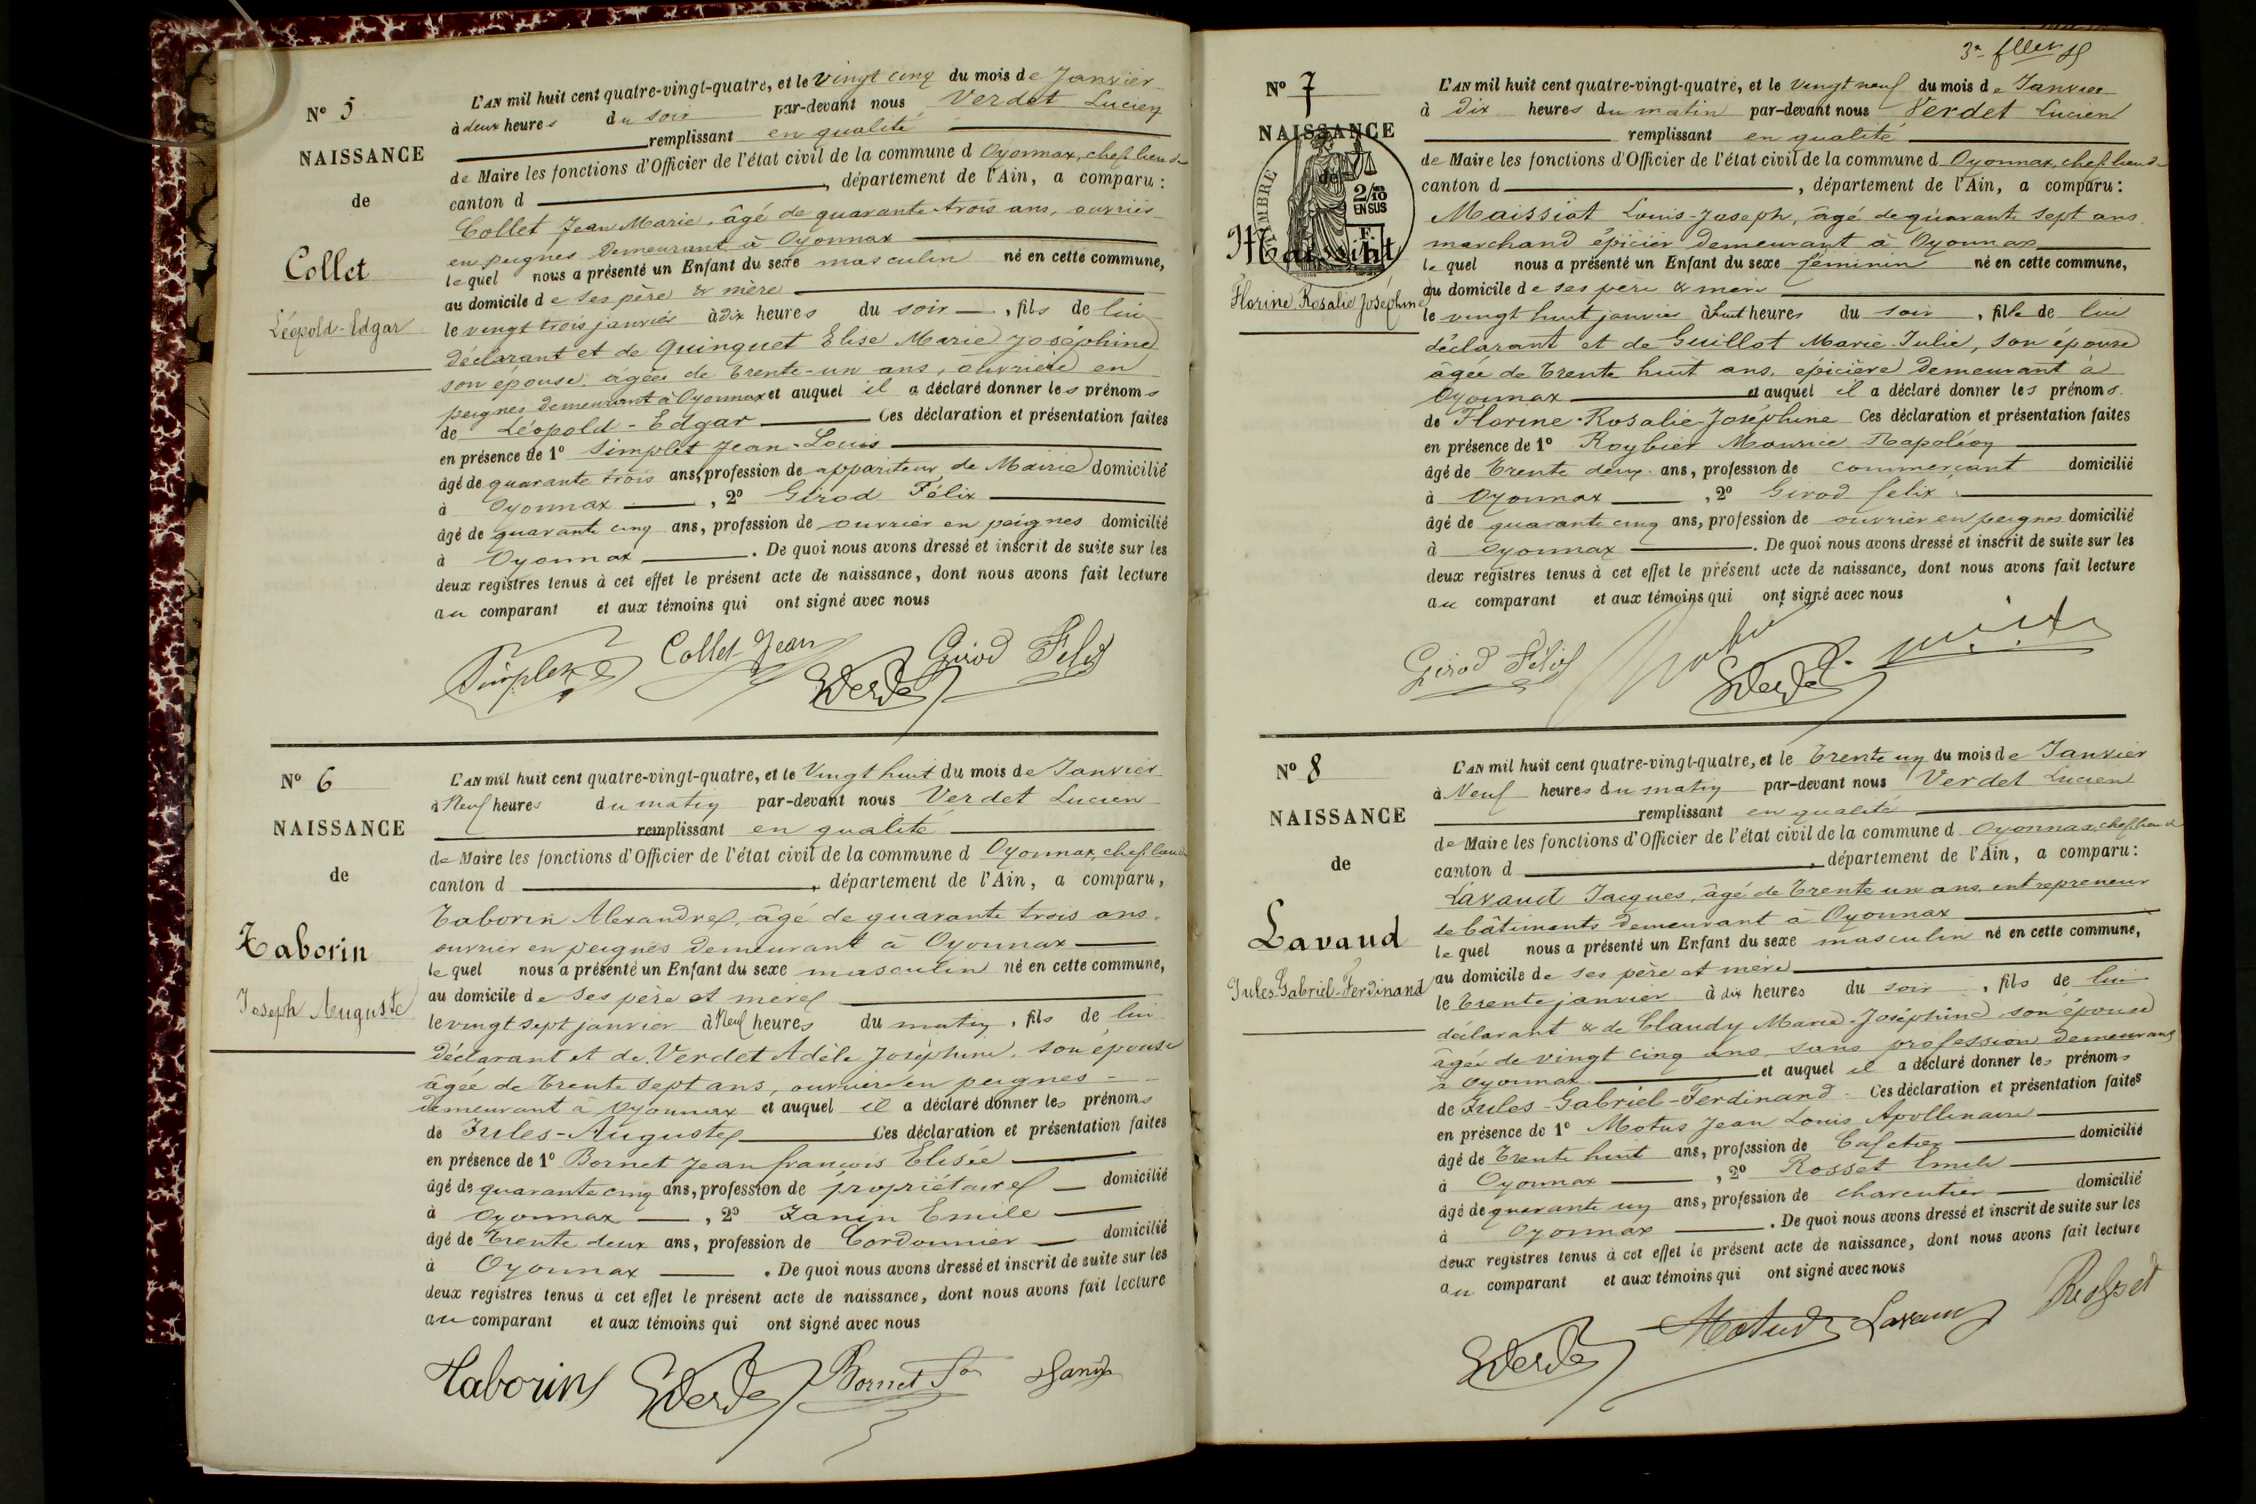 Nº 5
NAISSANCE
de
Collet
Léopold-Edgar
L'AN mil huit cent quatre-vingt-quatre, et le Vingt cinq du mois de Janvier
à deux heures du soir par-devant nous Verdet Lucien
remplissant en qualité
de Maire les fonctions d'Officier de l'état civil de la commune d Oyonnax, chef lieu de
canton d , département de l'Ain, a comparu :
Collet Jean Marie, âgé de quarante trois ans, ouvrier
en peignes demeurant à Oyonnax
le quel nous a présenté un Enfant du sexe masculin né en cette commune,
au domicile de ses père & mère
le vingt trois janvier à dix heures du soir , fils de lui
déclarant et de Quinquet Elise Marie Joséphine
son épouse, âgée de trente-un ans, ouvrière en
peignes demeurant à Oyonnax et auquel il a déclaré donner les prénoms
de Léopold - Edgar Ces déclaration et présentation faites
en présence de 1º Simplet Jean-Louis
âgé de quarante trois ans, profession de appariteur de Mairie domicilié
à Oyonnax , 2º Girod Félix
âgé de quarante cinq ans, profession de ouvrier en peignes domicilié
à Oyonnax . De quoi nous avons dressé et inscrit de suite sur les
deux registres tenus à cet effet le présent acte de naissance, dont nous avons fait lecture
au comparant et aux témoins qui ont signé avec nous
Simplet Collet Jean Verdet Girod Félix
Nº 6
NAISSANCE
de
Taborin
Joseph Auguste
L'AN mil huit cent quatre-vingt-quatre, et le Vingt huit du mois de Janvier
à Neuf heures du matin par-devant nous Verdet Lucien
remplissant en qualité
de Maire les fonctions d'Officier de l'état civil de la commune d Oyonnax, chef lieu de
canton d , département de l'Ain, a comparu,
Taborin Alexandre, âgé de quarante trois ans,
ouvrier en peignes demeurant à Oyonnax
le quel nous a présenté un Enfant du sexe masculin né en cette commune,
au domicile de ses père et mère
le vingt sept janvier à Neuf heures du matin , fils de lui
déclarant et de Verdet Adèle Joséphine, son épouse
âgée de trente sept ans, ouvrière en peignes
demeurant à Oyonnax et auquel il a déclaré donner les prénoms
de Jules-Auguste Ces déclaration et présentation faites
en présence de 1º Bornet Jean françois Elisée
âgé de quarante cinq ans, profession de propriétaire domicilié
à Oyonnax , 2º Janin Emile
âgé de trente deux ans, profession de Cordonnier domicilié
à Oyonnax . De quoi nous avons dressé et inscrit de suite sur les
deux registres tenus à cet effet le présent acte de naissance, dont nous avons fait lecture
au comparant et aux témoins qui ont signé avec nous
Taborin Verdet Bornet Janin
3e
Nº 7
NAISSANCE
de
TIMBRE
2/10
EN SUS
Maissiat
Florine Rosalie Joséphine
L'AN mil huit cent quatre-vingt-quatre, et le vingt neuf du mois de Janvier
à Dix heures du matin par-devant nous Verdet Lucien
remplissant en qualité
de Maire les fonctions d'Officier de l'état civil de la commune d Oyonnax, chef lieu de
canton d , département de l'Ain, a comparu :
Maissiat Louis-Joseph, âgé de quarante sept ans
marchand épicier demeurant à Oyonnax
le quel nous a présenté un Enfant du sexe féminin né en cette commune,
au domicile de ses père & mère
le vingt huit janvier à huit heures du soir , fille de lui
déclarant et de Guillot Marie-Julie, son épouse
âgée de trente huit ans, épicière demeurant à
Oyonnax et auquel il a déclaré donner les prénoms
de Florine-Rosalie-Joséphine Ces déclaration et présentation faites
en présence de 1º Roybier Maurice Napoléon
âgé de trente deux ans, profession de commerçant domicilié
à Oyonnax , 2º Girod félix
âgé de quarante cinq ans, profession de ouvrier en peignes domicilié
à Oyonnax . De quoi nous avons dressé et inscrit de suite sur les
deux registres tenus à cet effet le présent acte de naissance, dont nous avons fait lecture
au comparant et aux témoins qui ont signé avec nous
Girod Félix Verdet
Nº 8
NAISSANCE
de
Lavaud
Jules-Gabriel-Ferdinand
L'AN mil huit cent quatre-vingt-quatre, et le trente un du mois de Janvier
à Neuf heures du matin par-devant nous Verdet Lucien
remplissant en qualité
de Maire les fonctions d'Officier de l'état civil de la commune d Oyonnax, chef lieu de
canton d , département de l'Ain, a comparu :
Lavaud Jacques, âgé de trente un ans, entrepreneur
de bâtiments demeurant à Oyonnax
le quel nous a présenté un Enfant du sexe masculin né en cette commune,
au domicile de ses père et mère
le trente janvier à dix heures du soir , fils de lui
déclarant & de Claudy Marie-Joséphine son épouse
âgée de vingt cinq ans sans profession demeurant
à Oyonnax et auquel il a déclaré donner les prénoms
de Jules-Gabriel-Ferdinand Ces déclaration et présentation faites
en présence de 1º Motus Jean Louis Apollinaire
âgé de trente huit ans, profession de Cafetier domicilié
à Oyonnax , 2º Rosset Emile
âgé de quarante un ans, profession de charcutier domicilié
à Oyonnax . De quoi nous avons dressé et inscrit de suite sur les
deux registres tenus à cet effet le présent acte de naissance, dont nous avons fait lecture
au comparant et aux témoins qui ont signé avec nous
Verdet Motus Lavaud Rosset